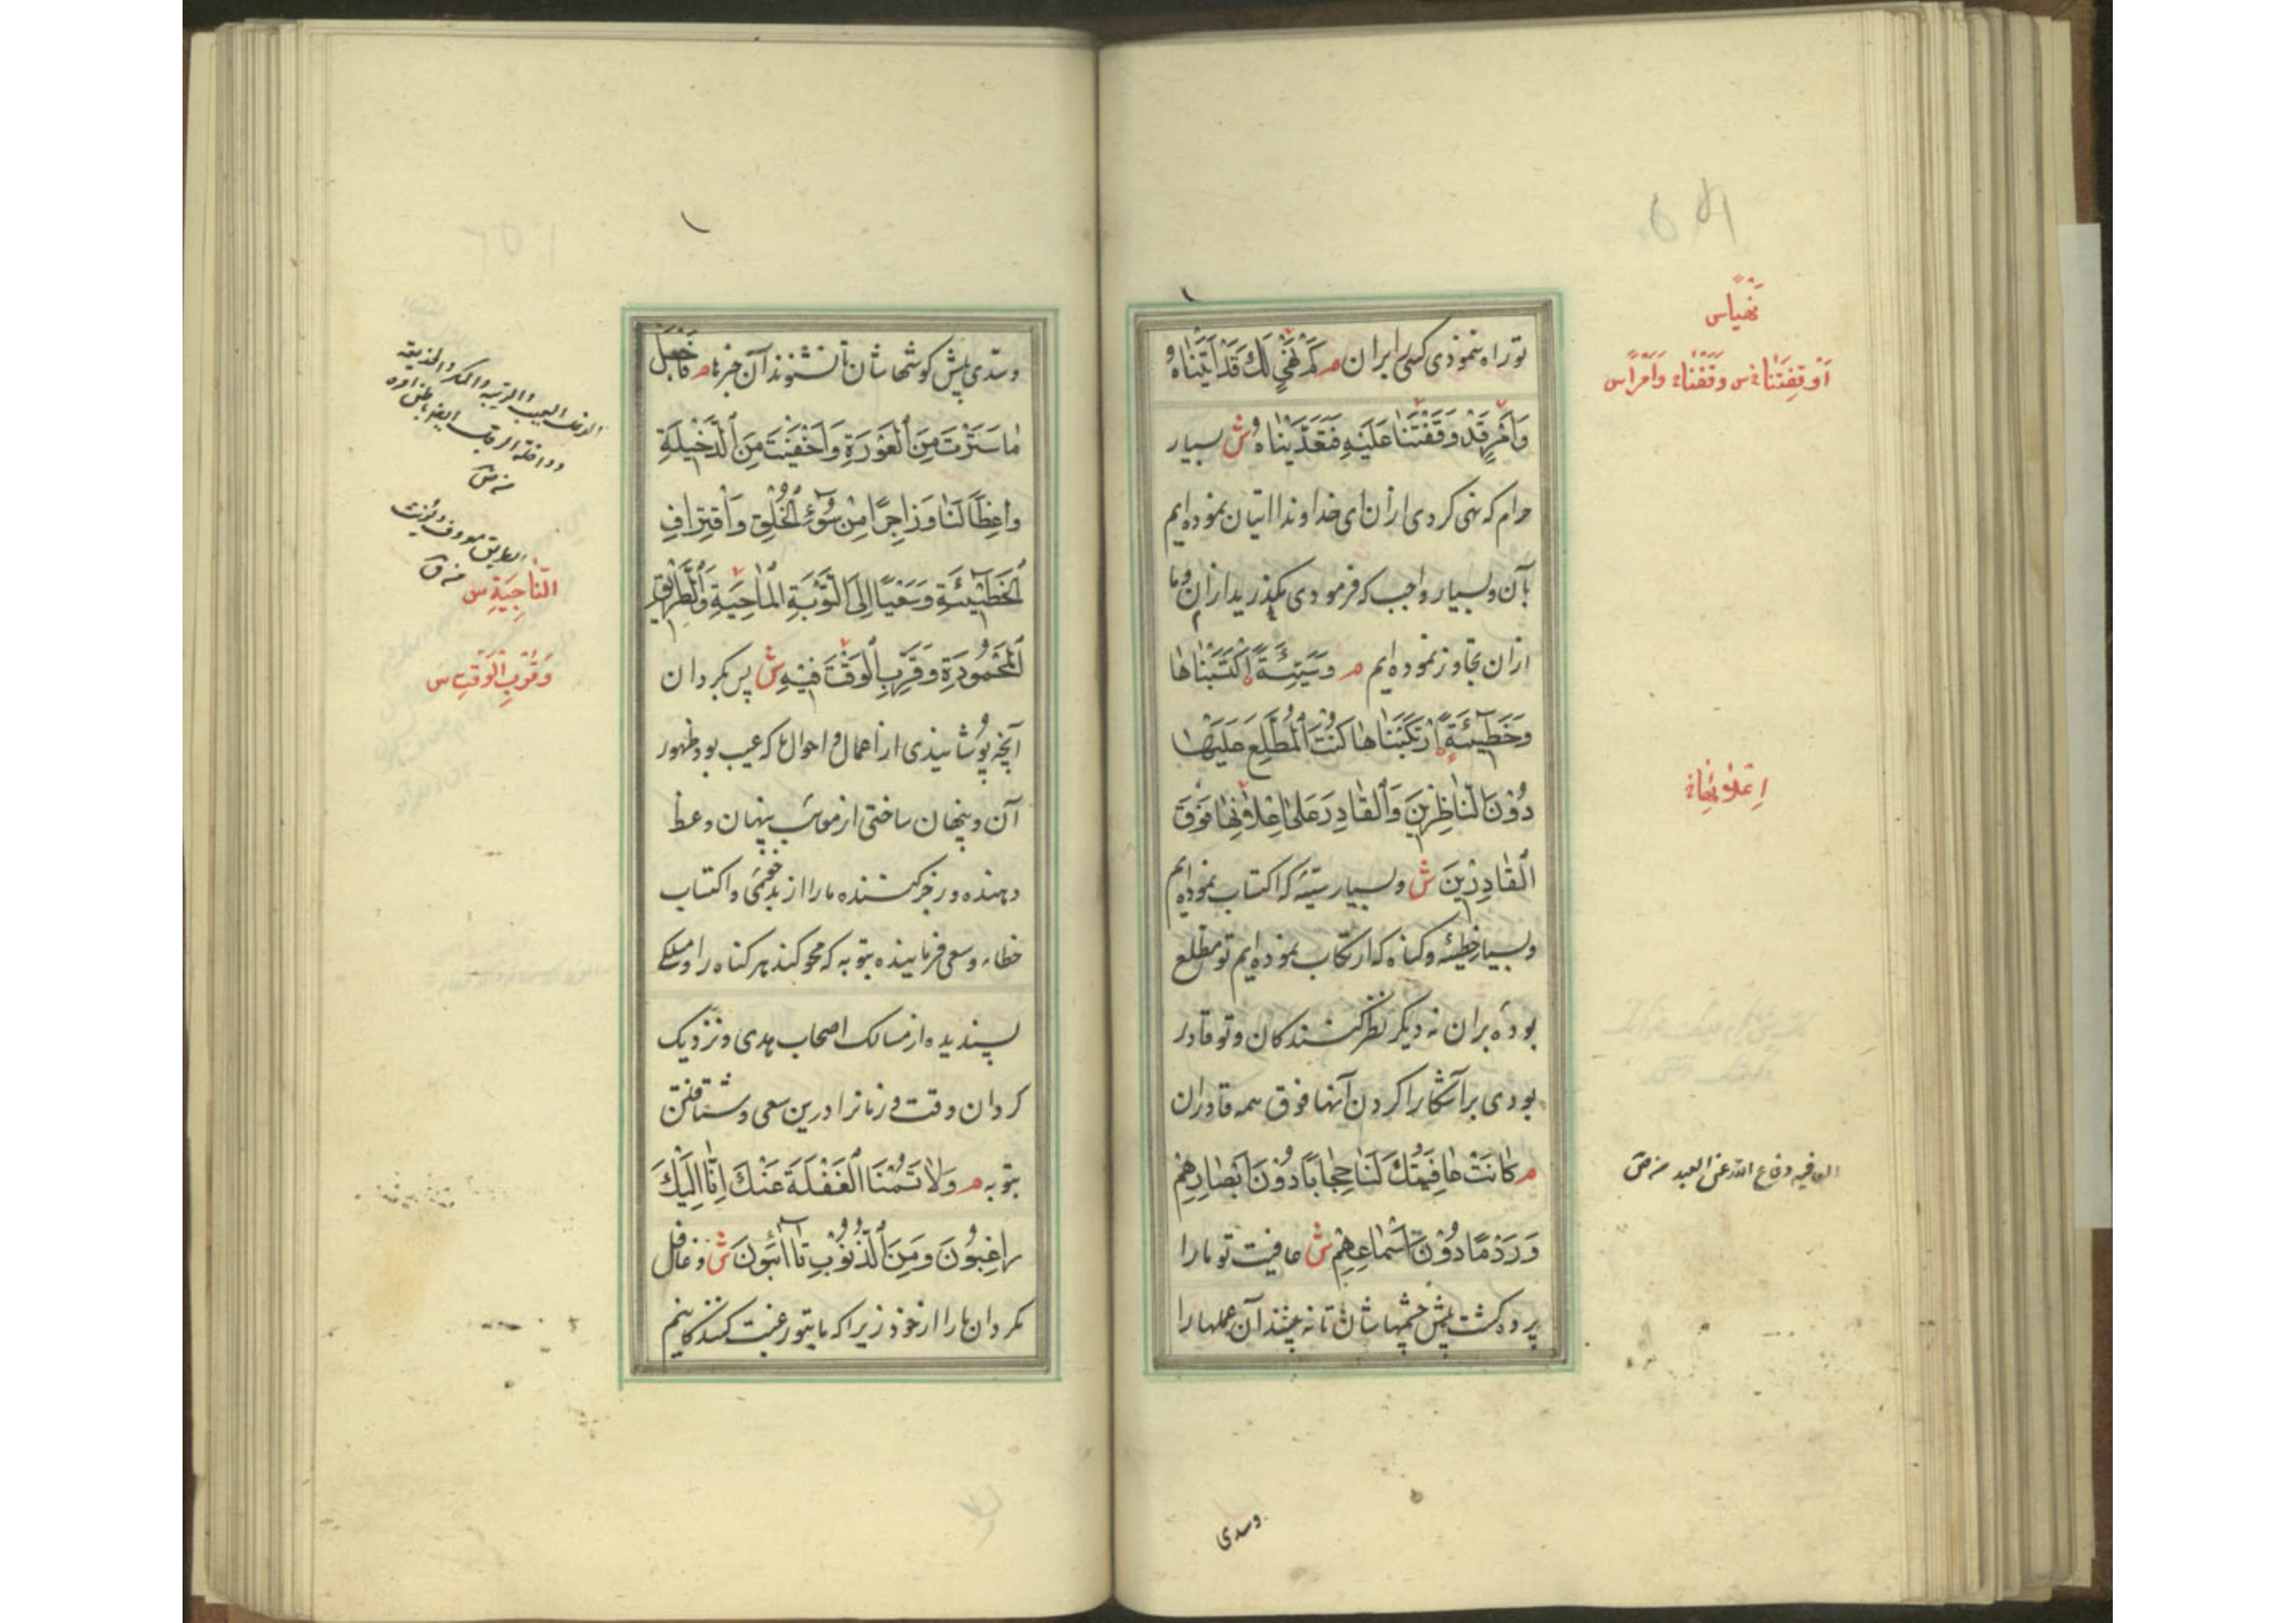 تو راه ننمودی کسی را بران م کم نهی لك قد اتیناه و
وَاَمْرٍ قَدْ وَقَفْتَنَا عَلَيْهِ فَتَعَدَّيْنَاهُ ش و بسیار
حرام که نهی کردی ازان ای خداوند ما اتیان نموده‌ایم
بآن و بسیار واجب که فرمودی مگذرید ازان و ما
ازان تجاوز نموده‌ایم م وَسَيِّئَةٍ اكْتَسَبْنَاهَا
وَخَطِيئَةٍ ارْتَكَبْنَاهَا كُنْتَ الْمُطَّلِعَ عَلَيْهَا
دُونَ النَّاظِرِينَ وَالْقَادِرَ عَلَىٰ اِعْلَانِهَا فَوْقَ
الْقَادِرِينَ ش و بسیار سیئه که اکتساب نموده‌ایم
و بسیار خطیئه و کناه که ارتکاب نموده‌ایم تو مطلع
بودهٔ بران نه دیکر نظر کنندکان و تو قادر
بودی بر آشکارا کردن آنها فوق همه قادران
م كَانَتْ عَافِيَتُكَ لَنَا حِجَابًا دُونَ اَبْصَارِهِمْ
وَرَدْمًا دُونَ اَسْمَاعِهِمْ ش عافیت تو ما را
پرده کشت پیش چشمهاشان تا نه بینند آن عملها را
نهیا س
او قفتنا وقفنا وامرا س
اعلائها
العافیه دفاع الله عن العبد
وسدی
و سدی پیش کوشهاشان تا نشنوند آن خبرها م فَاجْعَلْ
مَا سَتَرْتَ مِنَ الْعَوْرَةِ وَاَخْفَيْتَ مِنَ الدَّخِيلَةِ
وَاعِظًا لَنَا وَزَاجِرًا مِنْ سُوءِ الْخُلُقِ وَاقْتِرَافِ
الْخَطِيئَةِ وَسَعْيًا اِلَى التَّوْبَةِ الْمَاحِيَةِ وَالطَّرِيقِ
الْمَحْمُودَةِ وَقَرِّبِ الْوَقْتَ فِيهِ ش پس بکردان
آنچه پوشانیدی از اعمال و احوال ما که عیب بود ظهور
آن و پنهان ساختی از پنهان وعظ
دهنده و زجر کننده ما را از بدخویی و اکتساب
خطاء و سعی فرماینده بتوبه که محو کند هر کناه را و مسلکی
پسندیده از مسالک اصحاب هدی و نزدیک
کردان وقت و زمانرا درین سعی و شتافتن
بتوبه م وَلَا تَسُمْنَا الْغَفْلَةَ عَنْكَ اِنَّا اِلَيْكَ
رَاغِبُونَ وَمِنَ الذُّنُوبِ تَائِبُونَ ش و غافل
مکردان ما را از خود زیرا که ما بتو رغبت کنندکانیم
النَّاجِيَةِ س
وَقُرْبِ الْوَقْتِ س